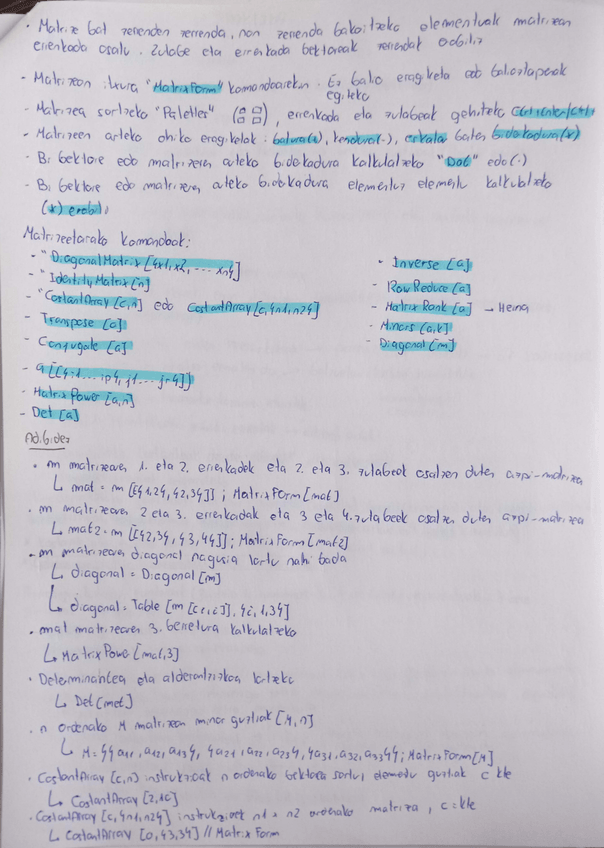 · Matrize bat zerrenden zerrenda, non zerrenda bakoitzeko elementuak matrizean
errenkada osatu. Zutabe eta errenkada bektoreak zerrendak
- Matrizeen itxura "MatrixForm" komandoarekin. Ez balio eragiketa edo
egiteko
- Matrizea sortzeko "Palettes" , errenkada eta zutabeak gehitzeko
- Matrizeen arteko ohiko eragiketak: batura(+), kendura(-), eskalar baten biderkadura(*)
- Bi bektore edo matrizeren arteko biderkadura kalkulatzeko "Dot" edo(.)
- Bi bektore edo matrizeren arteko biderkadura elementuz elementu kalkulatzeko
(*) erabili
Matrizeetarako komandoak:
- "DiagonalMatrix[{x1,x2,...xn}]
- "IdentityMatrix[n]
- "CostantArray[c,n] edo CostantArray[c,{n1,n2}]
- Transpose[a]
- Conjugate[a]
- a[[{i1...ip},{j1...jr}]]
- MatrixPower[a,n]
- Det[a]
- Inverse[a]
- RowReduce[a]
- MatrixRank[a] → Heina
- Minors[a,k]
- Diagonal[m]
Adibidez
· m matrizearen 1. eta 2. errenkadek eta 2. eta 3. zutabeek osatzen duten azpi-matrizea
↳ mat = m[[{1,2},{2,3}]]; MatrixForm[mat]
· m matrizearen 2 eta 3. errenkadak eta 3 eta 4. zutabeek osatzen duten azpi-matrizea
↳ mat2 = m[[{2,3},{3,4}]]; MatrixForm[mat2]
· m matrizearen diagonal nagusia lortu nahi bada
↳ diagonal = Diagonal[m]
↳ diagonal = Table[m[[i,i]],{i,1,3}]
· mat matrizearen 3. berretura kalkulatzeko
↳ MatrixPower[mat,3]
· Determinantea eta alderantzizkoa lortzeko
↳ Det[mat]
· n ordenako M matrizean minor guztiak [M,n]
↳ M={{a11,a12,a13},{a21,a22,a23},{a31,a32,a33}}; MatrixForm[M]
· CostantArray[c,n] instrukzioak n ordenako bektorea sortu, elementu guztiak c kte
↳ CostantArray[2,10]
· CostantArray[c,{n1,n2}] instrukzioek n1 × n2 ordenako matrizea, c=kte
↳ CostantArray[0,{3,3}] // MatrixForm